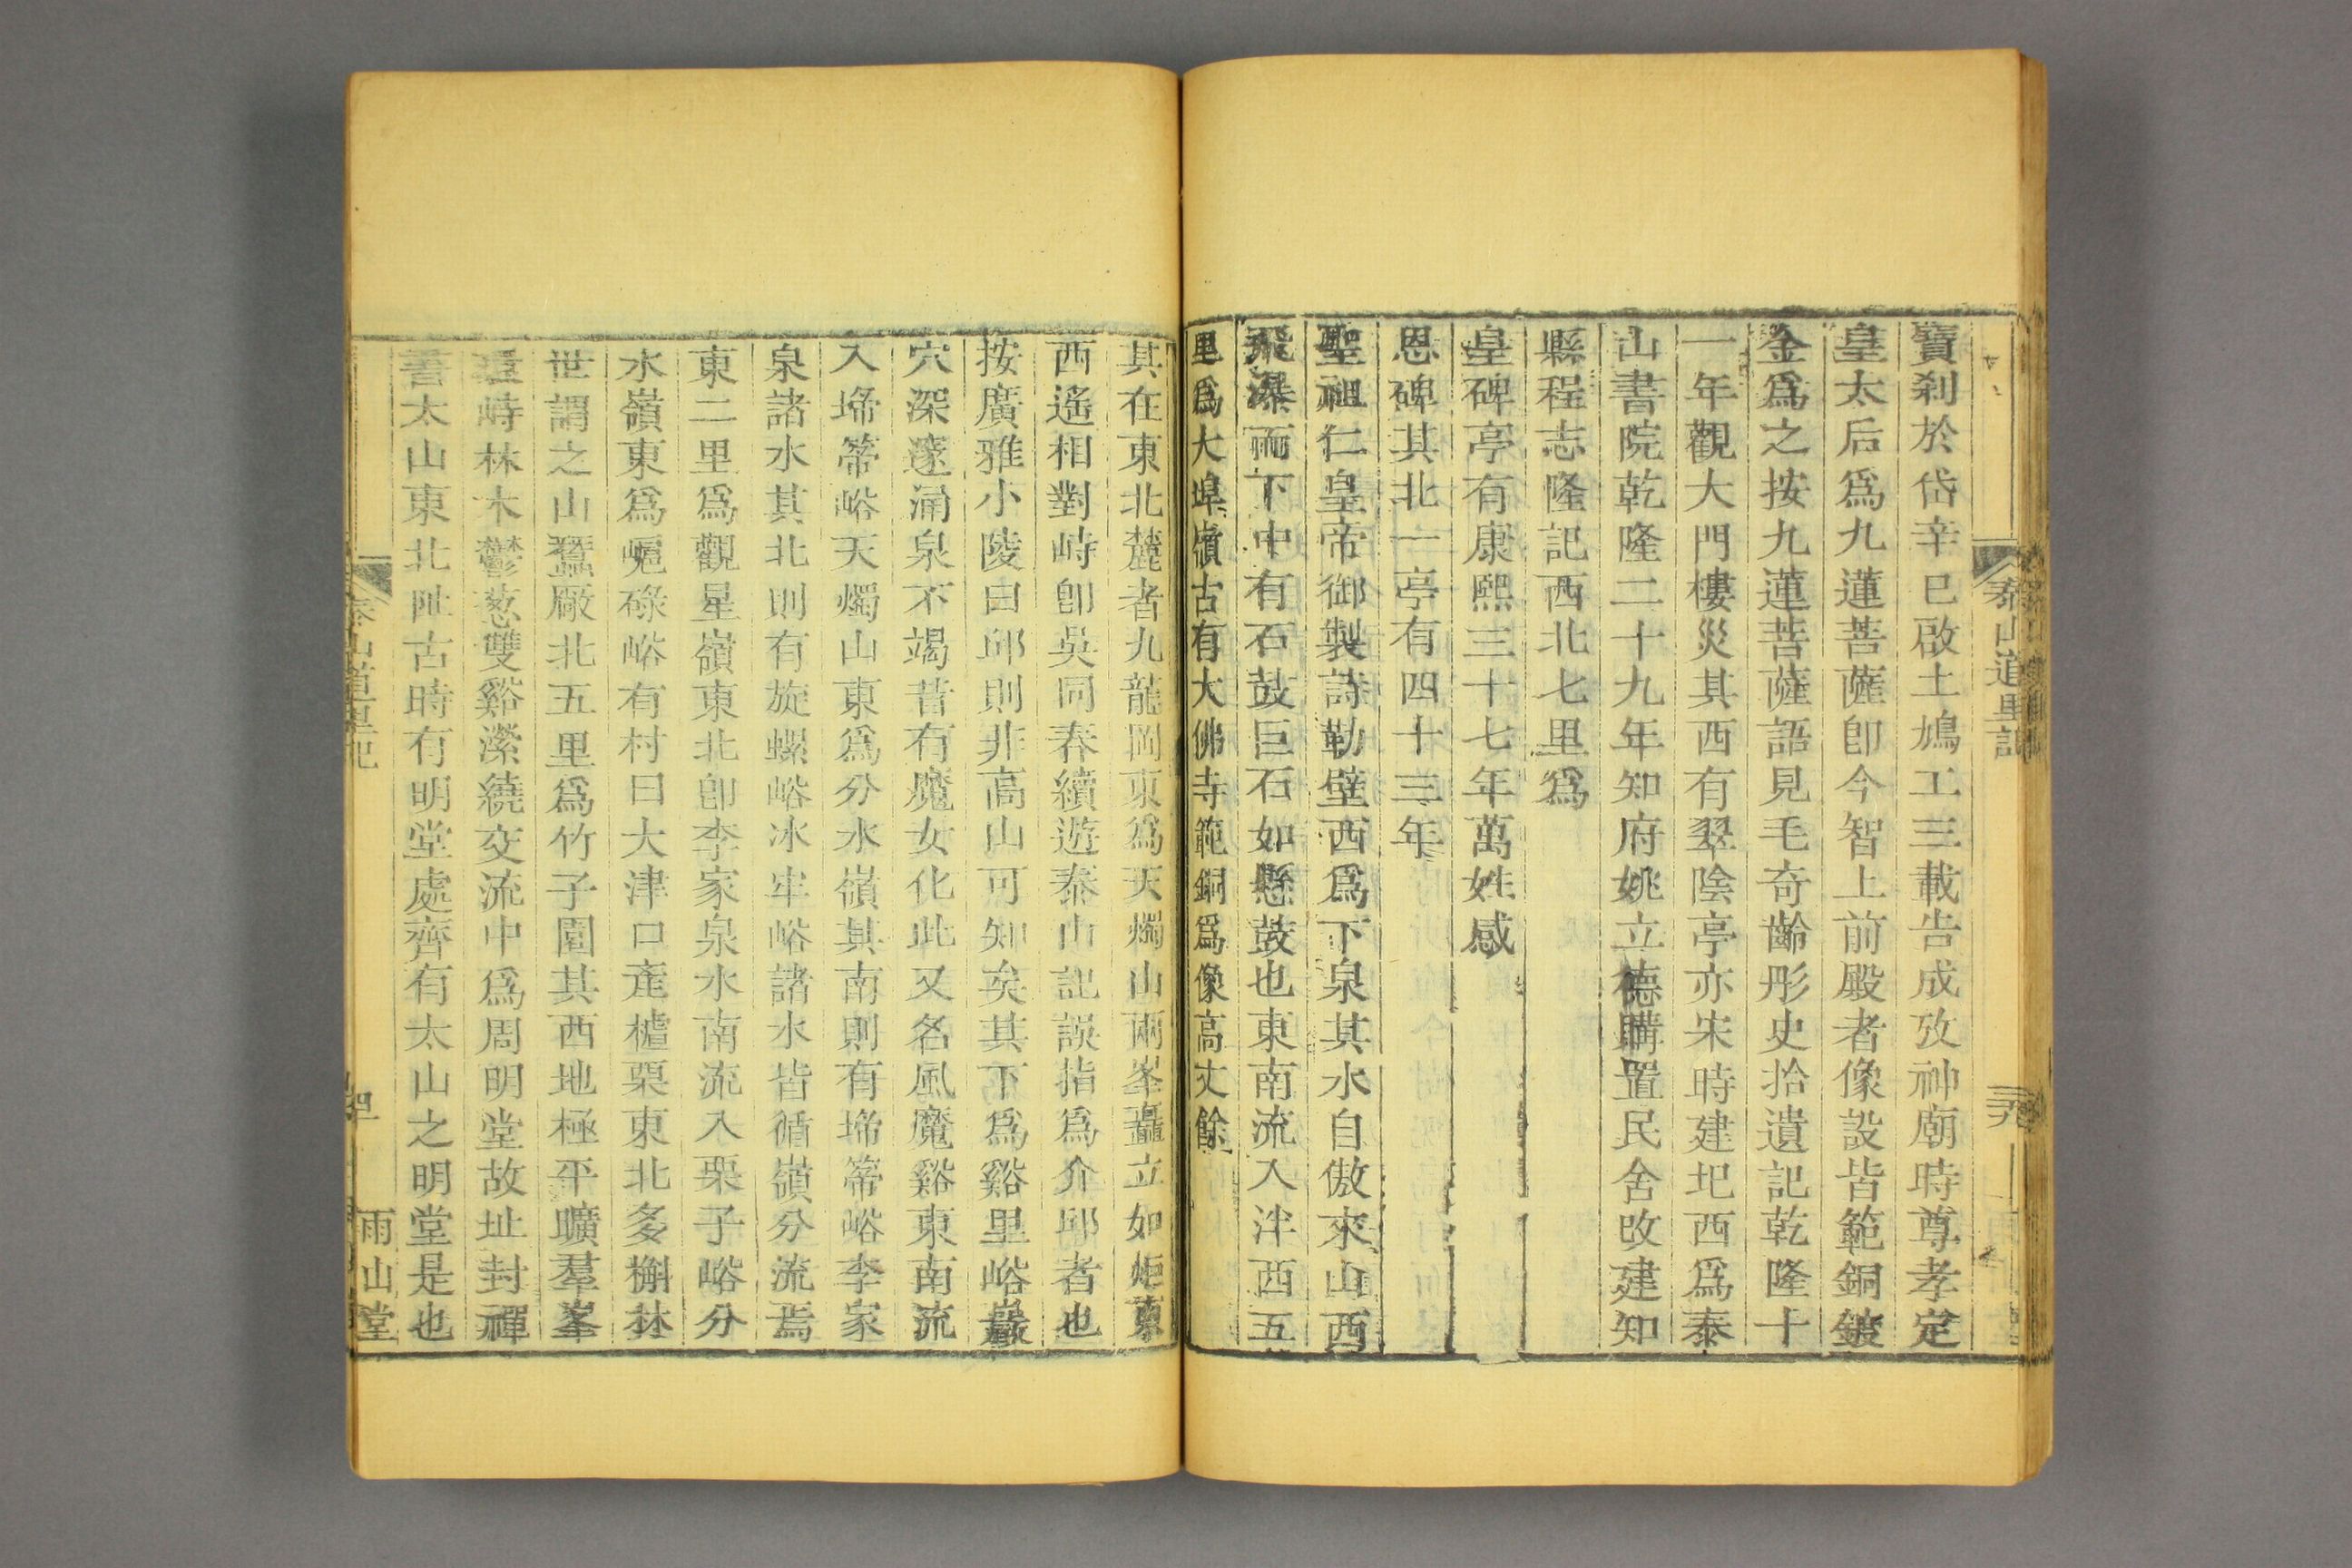 泰山道里記
三九
寶刹於岱辛巳啟土鳩工三載告成攷神廟時尊孝定
皇太后爲九蓮菩薩卽今智上前殿者像設皆範銅鍍
金爲之按九蓮菩薩語見毛奇齡彤史拾遺記乾隆十
一年觀大門樓災其西有翠陰亭亦宋時建圯西爲泰
山書院乾隆二十九年知府姚立德購置民舍改建知
縣程志隆記西北七里爲
皇碑亭有康熙三十七年萬姓感
恩碑其北一亭有四十三年
聖祖仁皇帝御製詩勒壁西爲下泉其水自傲來山西
飛瀑而下中有石鼓巨石如懸鼓也東南流入泮西五
里爲大埠嶺古有大佛寺範銅爲像高丈餘
其在東北麓者九龍岡東爲天燭山兩峯矗立如炬東
西遙相對峙卽吳同春續遊泰山記誤指爲介邱者也
按廣雅小陵曰邱則非高山可知矣其下爲谿里峪巖
穴深邃涌泉不竭昔有魔女化此又名風魔谿東南流
入埽箒峪天燭山東爲分水嶺其南則有埽箒峪李家
泉諸水其北則有旋螺峪冰牢峪諸水皆循嶺分流焉
東二里爲觀星嶺東北卽李家泉水南流入栗子峪分
水嶺東爲嵦碌峪有村曰大津口產樝栗東北多槲林
世謂之山蠶厰北五里爲竹子園其西地極平曠羣峯
遠峙林木鬱葱雙谿瀠繞交流中爲周明堂故址封禪
書太山東北阯古時有明堂處齊有太山之明堂是也
泰山道里記
雨山堂